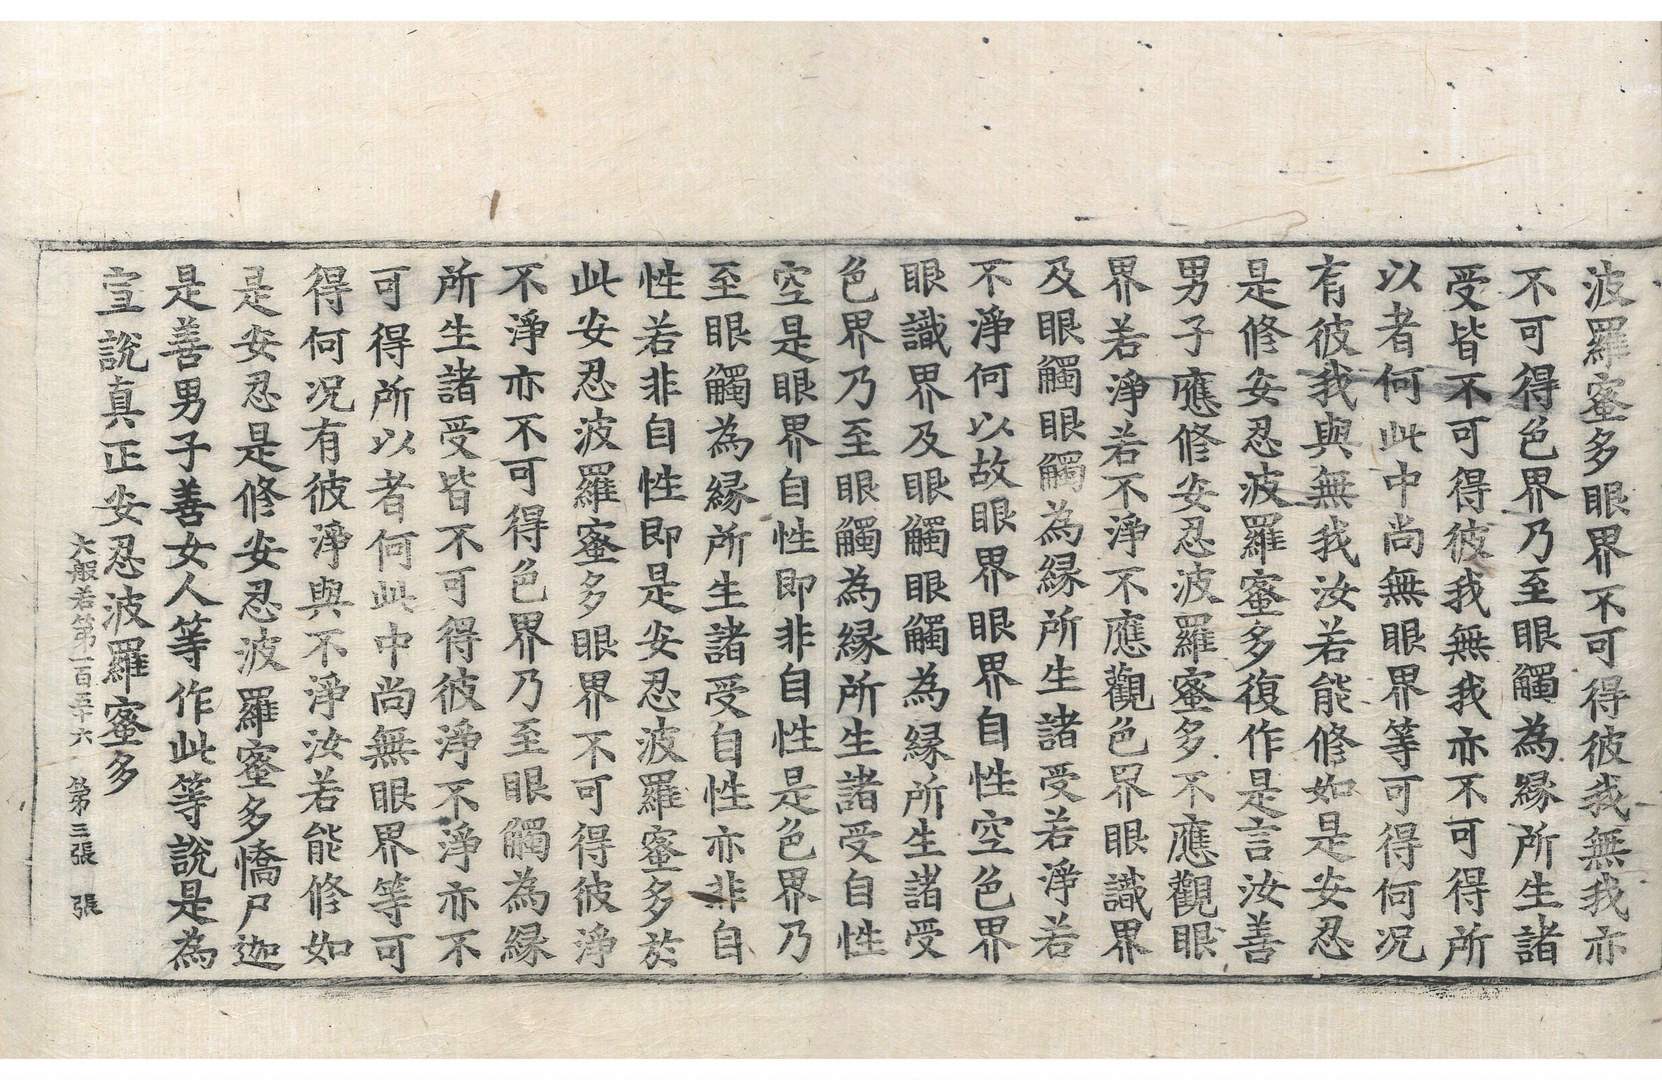 波羅蜜多眼界不可得彼我無我亦
不可得色界乃至眼觸為縁所生諸
受皆不可得彼我無我亦不可得所
以者何此中尚無眼界等可得何况
有彼我與無我汝若能修如是安忍
是修安忍波羅蜜多復作是言汝善
男子應修安忍波羅蜜多不應觀眼
界若淨若不淨不應觀色界眼識界
及眼觸眼觸為縁所生諸受若淨若
不淨何以故眼界眼界自性空色界
眼識界及眼觸眼觸為縁所生諸受
色界乃至眼觸為縁所生諸受自性
空是眼界自性即非自性是色界乃
至眼觸為縁所生諸受自性亦非自
性若非自性即是安忍波羅蜜多於
此安忍波羅蜜多眼界不可得彼淨
不淨亦不可得色界乃至眼觸為縁
所生諸受皆不可得彼淨不淨亦不
可得所以者何此中尚無眼界等可
得何况有彼淨與不淨汝若能修如
是安忍是修安忍波羅蜜多憍尸迦
是善男子善女人等作此等說是為
宣說真正安忍波羅蜜多
大般若第一百五十六 第三張 張